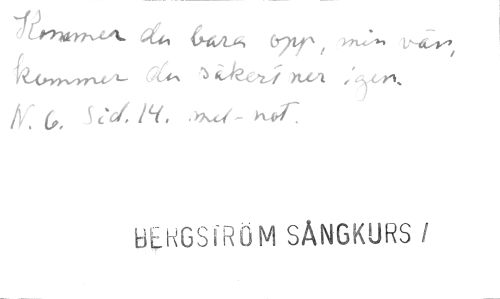 Kommer du bara opp, min vän,
kommer du säkert ner igen.
N. 6. Sid. 14. mel-not.
BERGSTRÖM SÅNGKURS /